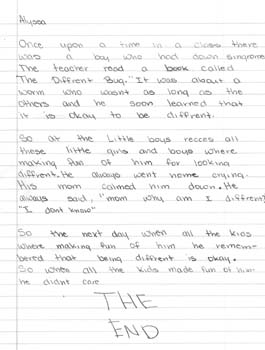 Alyssa
Once upon a time in a class there
was a boy who had down singrome
The teacher read a book called
The Diffrent Bug." It was about a
worm who wasnt as long as the
others and he soon learned that
it is okay to be diffrent.
So at the Little boys recces all
these little girls and boys where
making fun of him for looking
diffrent. He always went home crying.
His mom calmed him down. He
always said, "mom why am I diffrent?
"I dont know"
So the next day when all the kids
where making fun of him he remem-
bered that being diffrent is okay.
So when all the kids made fun of him
he didnt care
THE
END